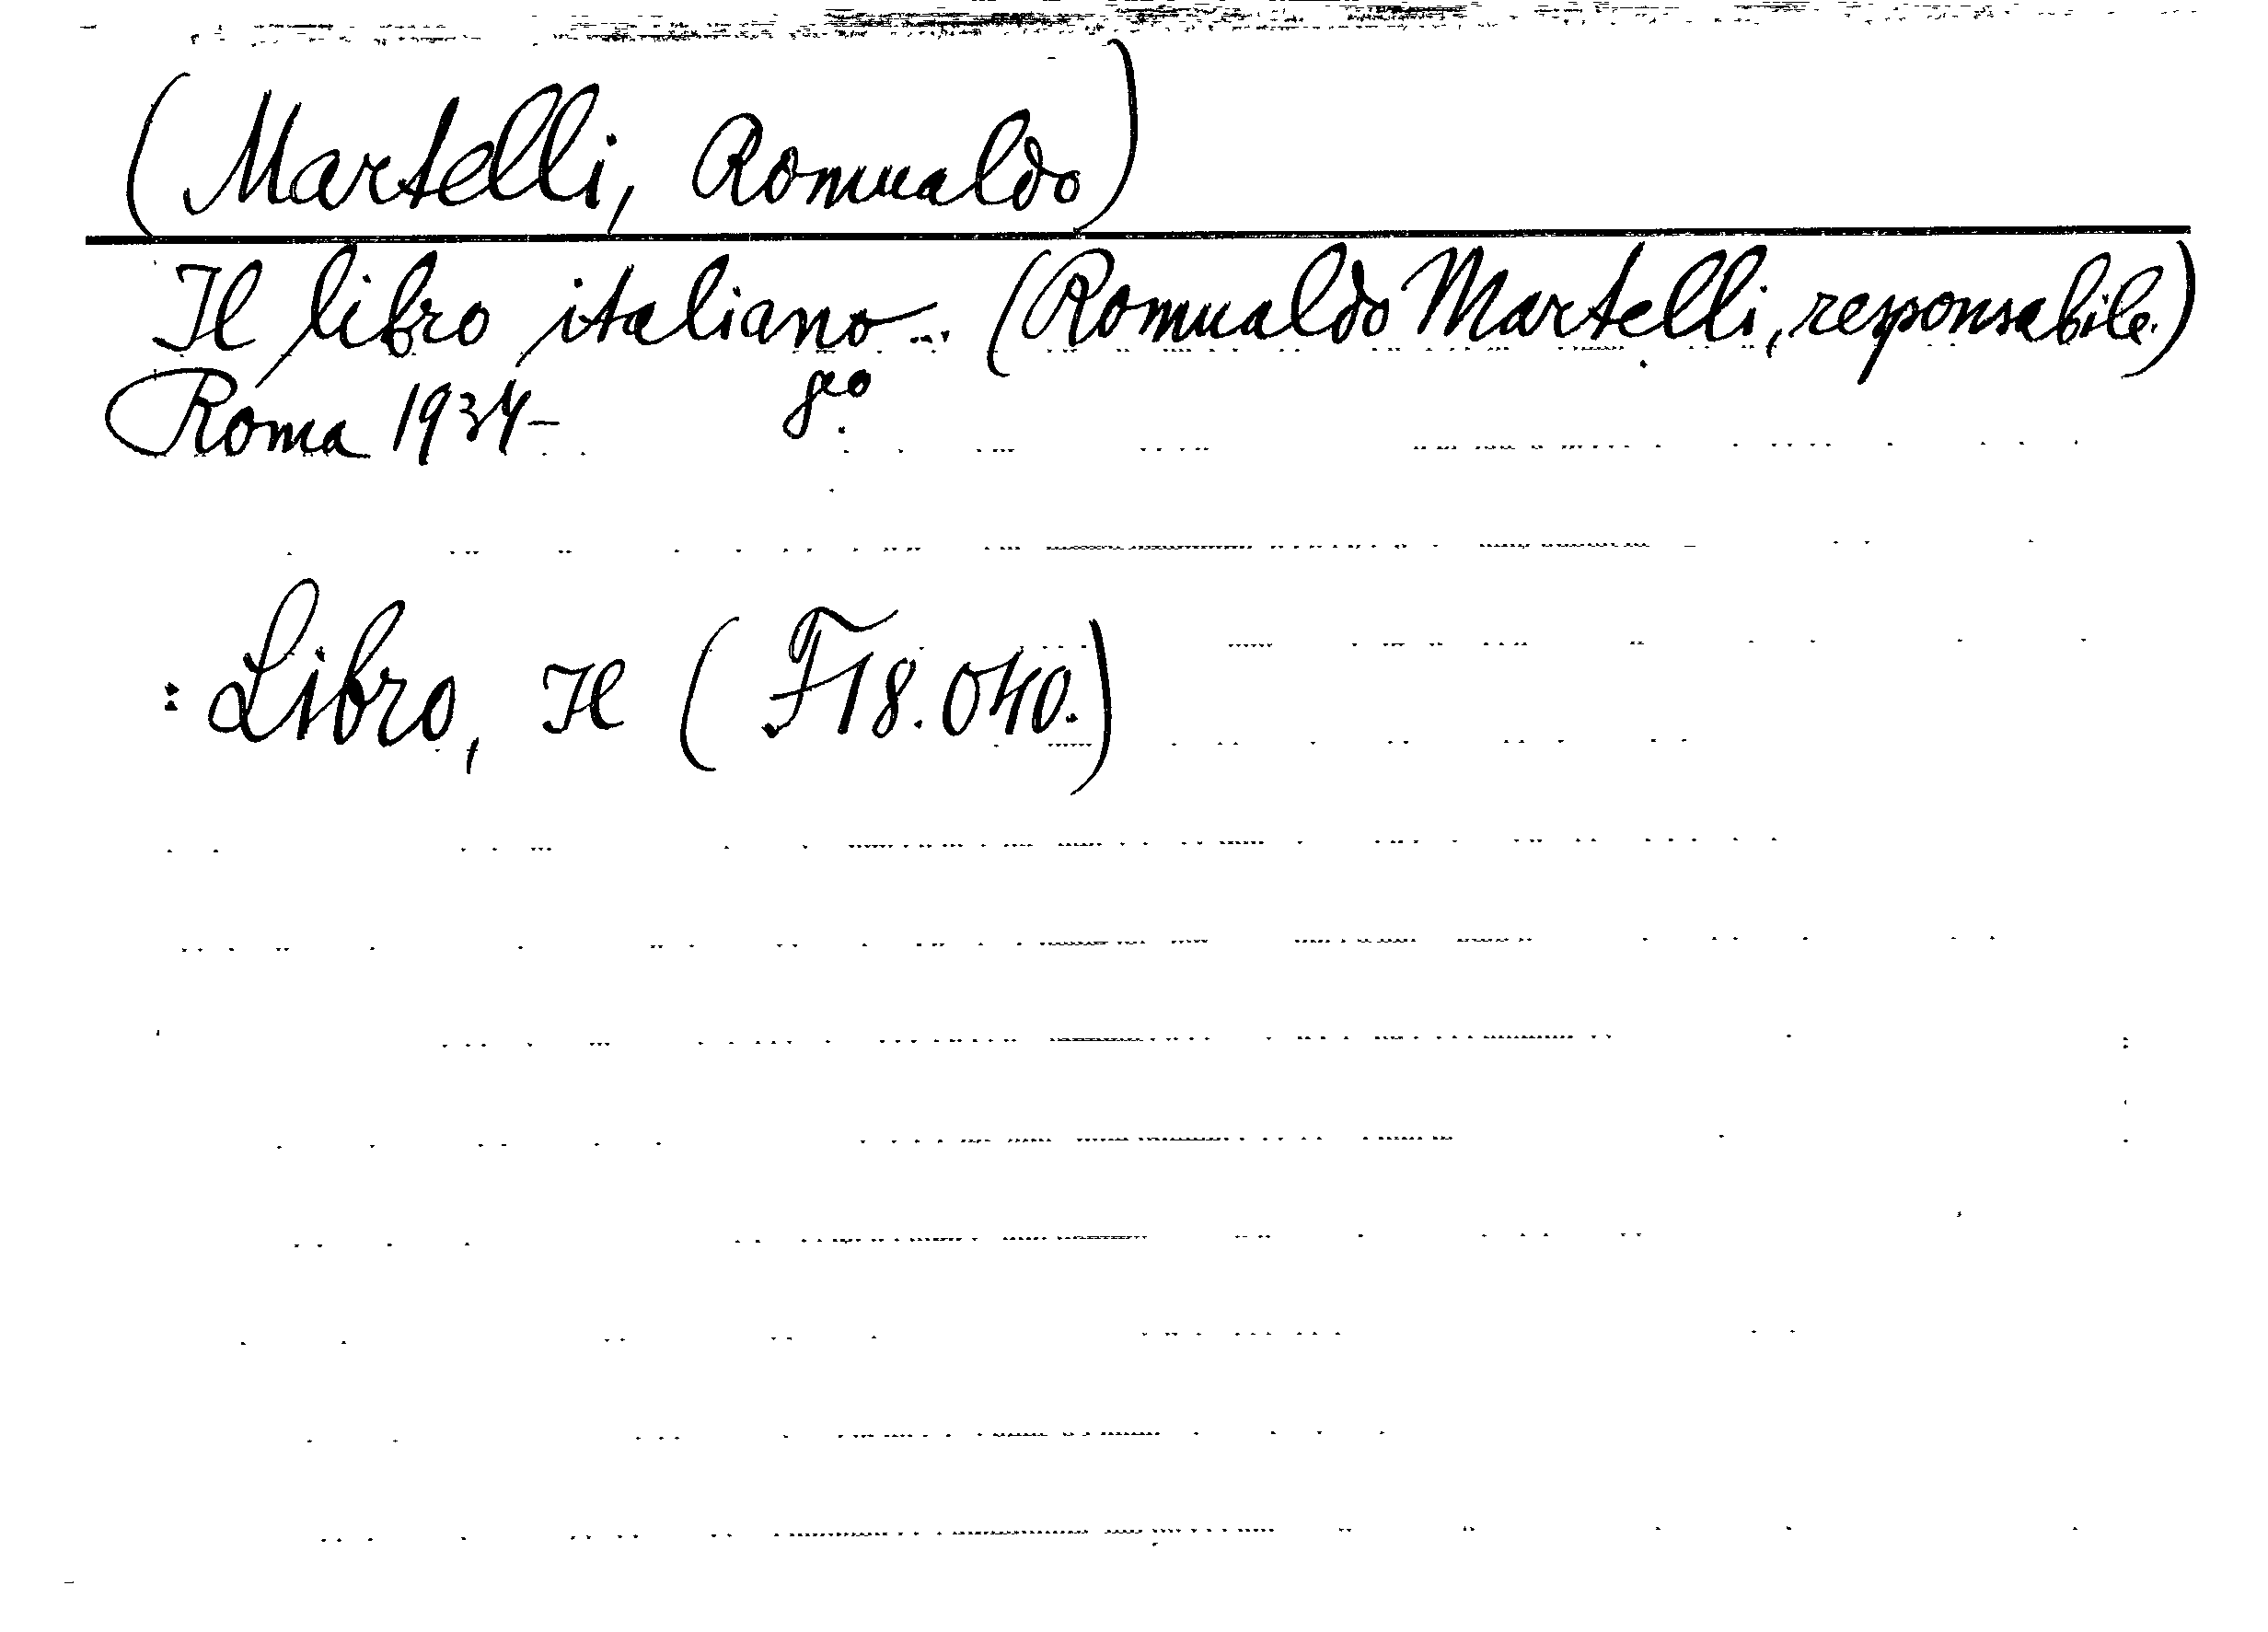 (Martelli, Romualdo)
Il libro italiano... (Romualdo Martelli, responsabile.)
Roma 1937- 8:o
: Libro, Il (F18.040.)